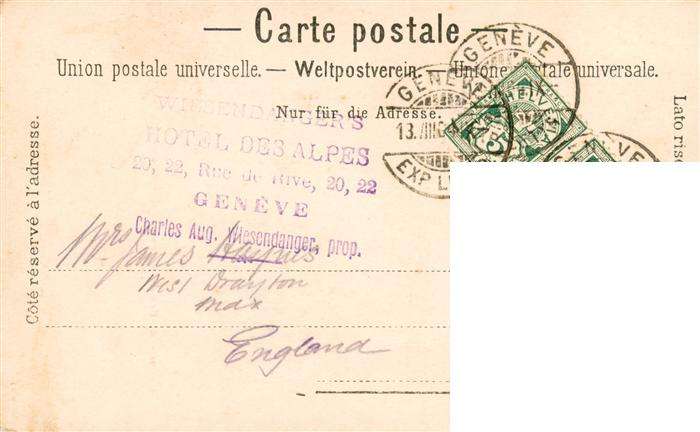 Carte postale.
Union postale universelle. — Weltpostverein. — Unione postale universale.
Nur für die Adresse.
Côté réservé à l'adresse.
Lato rise
WIESENDANGER'S
HOTEL DES ALPES
20, 22, Rue de Rive, 20, 22
GENÈVE
Charles Aug. Wiesendanger, prop.
GENÈVE
EXP. L
GENÈVE
5
Mrs James
West Drayton
Max
England